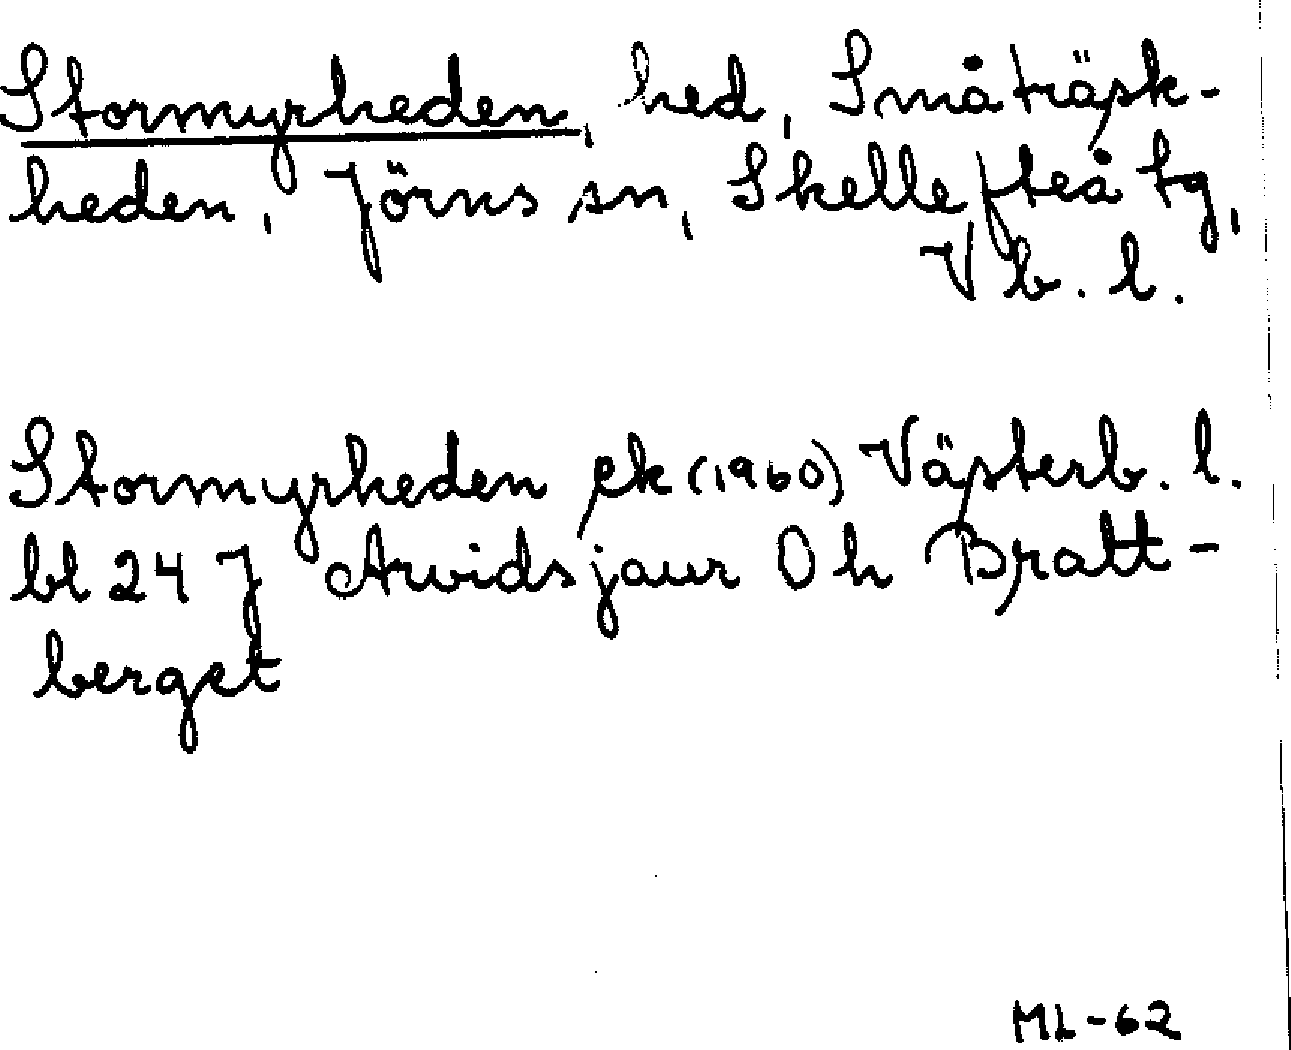 Stormyrheden, hed, Småträsk-
heden, Jörns sn, Skellefteå tg,
Vb. l.
Stormyrheden ek (1960) Västerb. l.
bl 24 J Arvidsjaur 0 h Bratt-
berget
ML-62